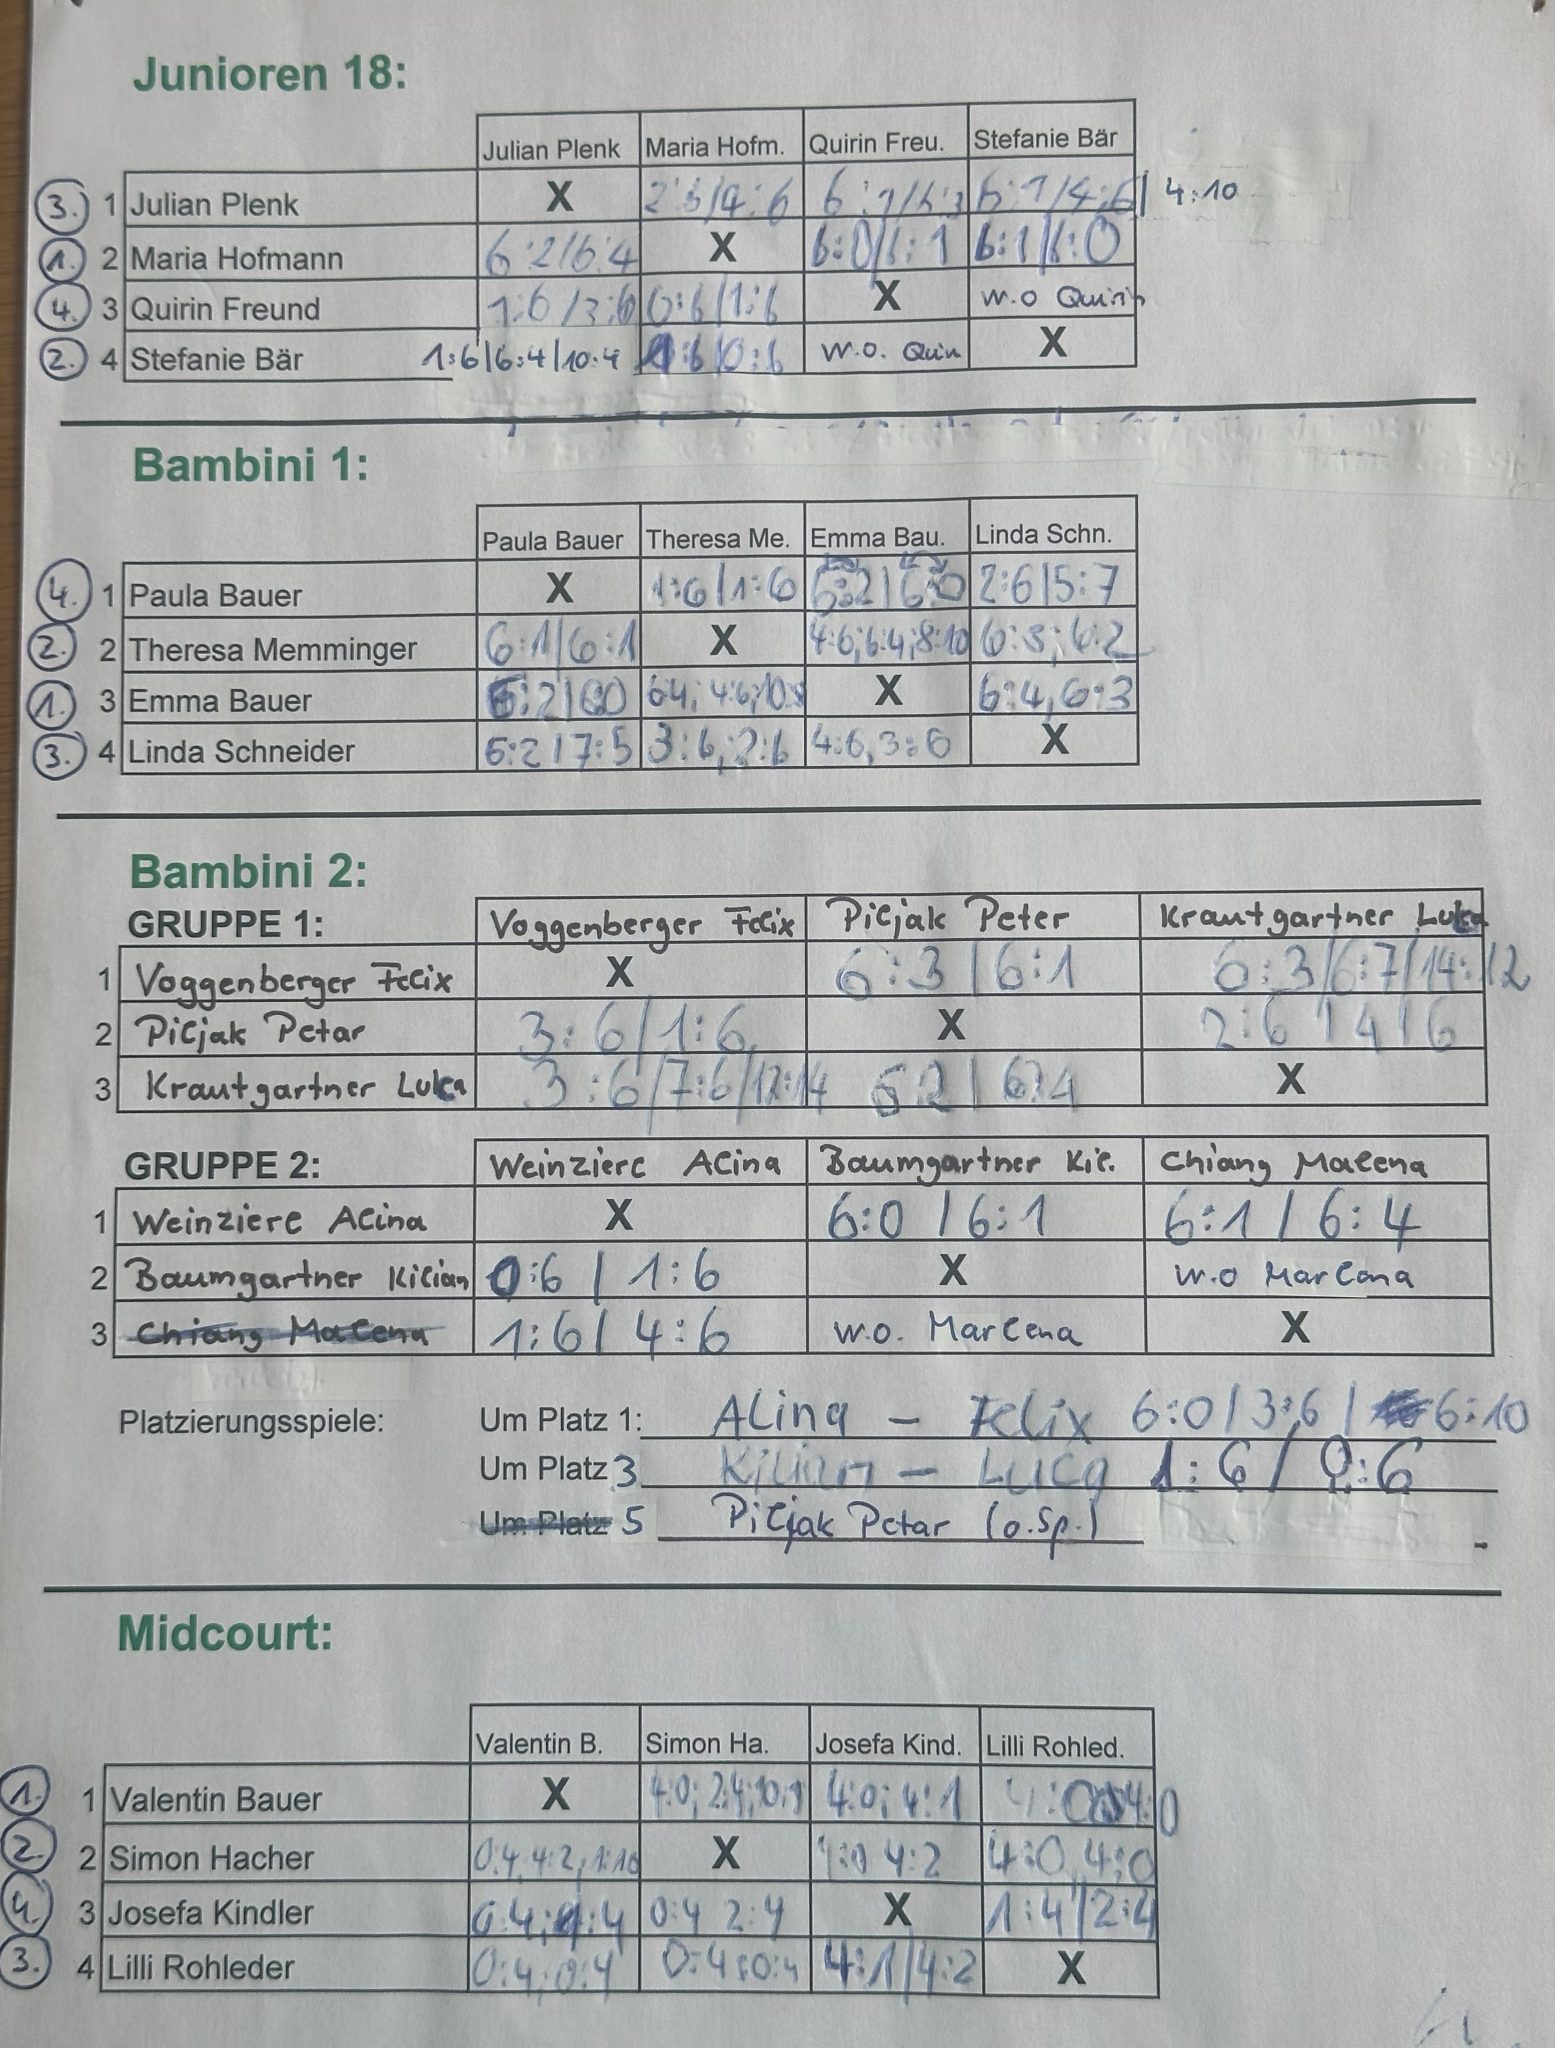 Junioren 18:
Julian Plenk Maria Hofm. Quirin Freu. Stefanie Bär
3. 1 Julian Plenk X 2:6/4:6 6:1/6:3 6:1/4:6/ 4:10
1. 2 Maria Hofmann 6:2/6:4 X 6:0/6:1 6:1/6:0
4. 3 Quirin Freund 1:6/3:6 0:6/1:6 X w.o Quirin
2. 4 Stefanie Bär 1:6/6:4/10:4 1:6/0:6 w.o. Quirin X
Bambini 1:
Paula Bauer Theresa Me. Emma Bau. Linda Schn.
4. 1 Paula Bauer X 1:6/1:6 6:2/6:0 2:6/5:7
2. 2 Theresa Memminger 6:1/6:1 X 4:6;6:4;8:10 6:3;6:2
1. 3 Emma Bauer 6:2/6:0 6:4; 4:6;10:8 X 6:4,6:3
3. 4 Linda Schneider 6:2/7:5 3:6,2:6 4:6,3:6 X
Bambini 2:
GRUPPE 1: Voggenberger Felix Piljak Peter Krautgartner Luca
1 Voggenberger Felix X 6:3/6:1 6:3/6:7/14:12
2 Piljak Petar 3:6/1:6 X 2:6/4/6
3 Krautgartner Luca 3:6/7:6/12:14 6:2/6:4 X
GRUPPE 2: Weinzierl Alina Baumgartner Kil. Chiang Malena
1 Weinzierl Alina X 6:0/6:1 6:1/6:4
2 Baumgartner Kilian 0:6/1:6 X w.o Marlena
3 Chiang Malena 1:6/4:6 w.o. Marlena X
Platzierungsspiele: Um Platz 1: Alina – Felix 6:0/3:6/6:10
Um Platz 3 Kilian – Luca 1:6/0:6
Um Platz 5 Piljak Petar (o.Sp.)
Midcourt:
Valentin B. Simon Ha. Josefa Kind. Lilli Rohled.
1. 1 Valentin Bauer X 4:0; 2:4; 10:1 4:0; 4:1 4:0 4:0
2. 2 Simon Hacher 0:4, 4:2, 1:10 X 4:0 4:2 4:0, 4:0
4. 3 Josefa Kindler 0:4; 1:4 0:4 2:4 X 1:4/2:4
3. 4 Lilli Rohleder 0:4; 0:4 0:4 0:4 4:1/4:2 X